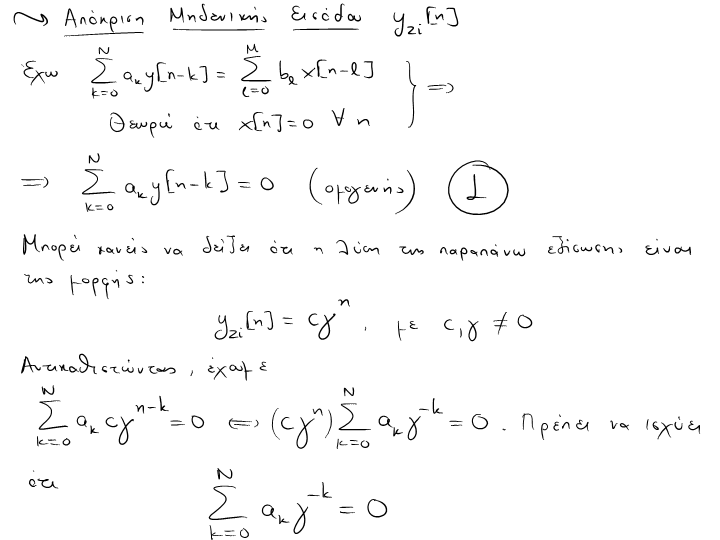 ⇝ Απόκριση Μηδενικής Εισόδου y_{zi}[n]
Έχω \sum_{k=0}^{N} a_k y[n-k] = \sum_{l=0}^{M} b_l x[n-l]
Θεωρώ ότι x[n]=0 ∀ n } ⇒
⇒ \sum_{k=0}^{N} a_k y[n-k] = 0 (ομογενής) ①
Μπορεί κανείς να δείξει ότι η λύση της παραπάνω εξίσωσης είναι
της μορφής:
y_{zi}[n] = cγ^n, με c,γ ≠ 0
Αντικαθιστώντας, έχουμε
\sum_{k=0}^{N} a_k cγ^{n-k} = 0 ⇔ (cγ^n) \sum_{k=0}^{N} a_k γ^{-k} = 0. Πρέπει να ισχύει
ότι \sum_{k=0}^{N} a_k γ^{-k} = 0